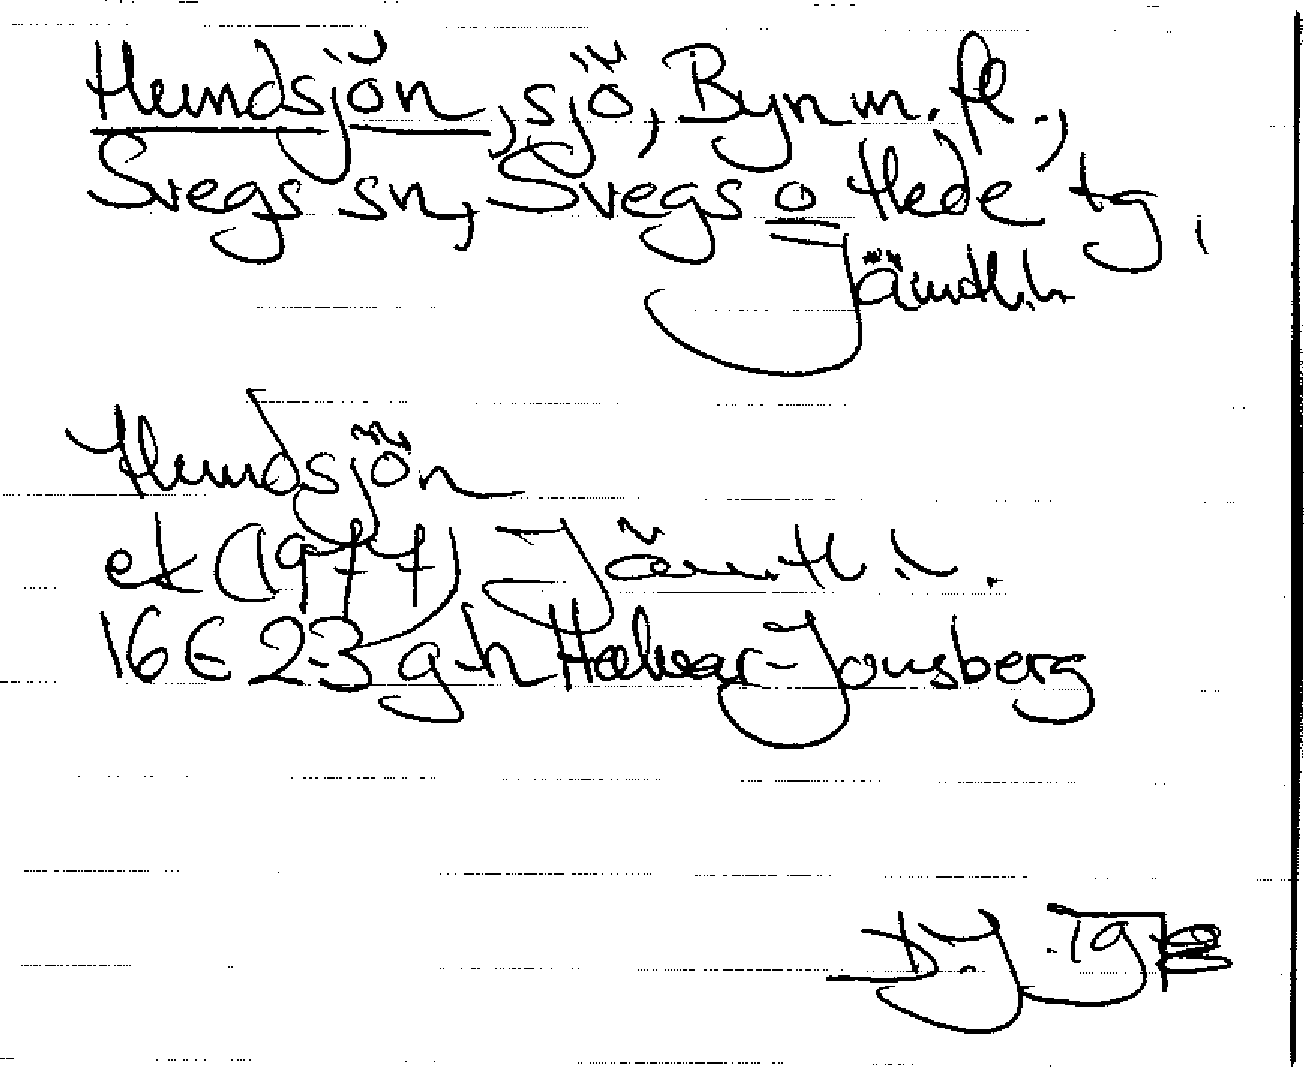 Hundsjön, sjö, Byn m. fl.,
Svegs sn, Svegs o Hede tg,
Jämtl.l.
Hundsjön
ek (1977) Jämtl. l.
16 E 2-3 g-h Halvar-Jonsberg
D. J. 19